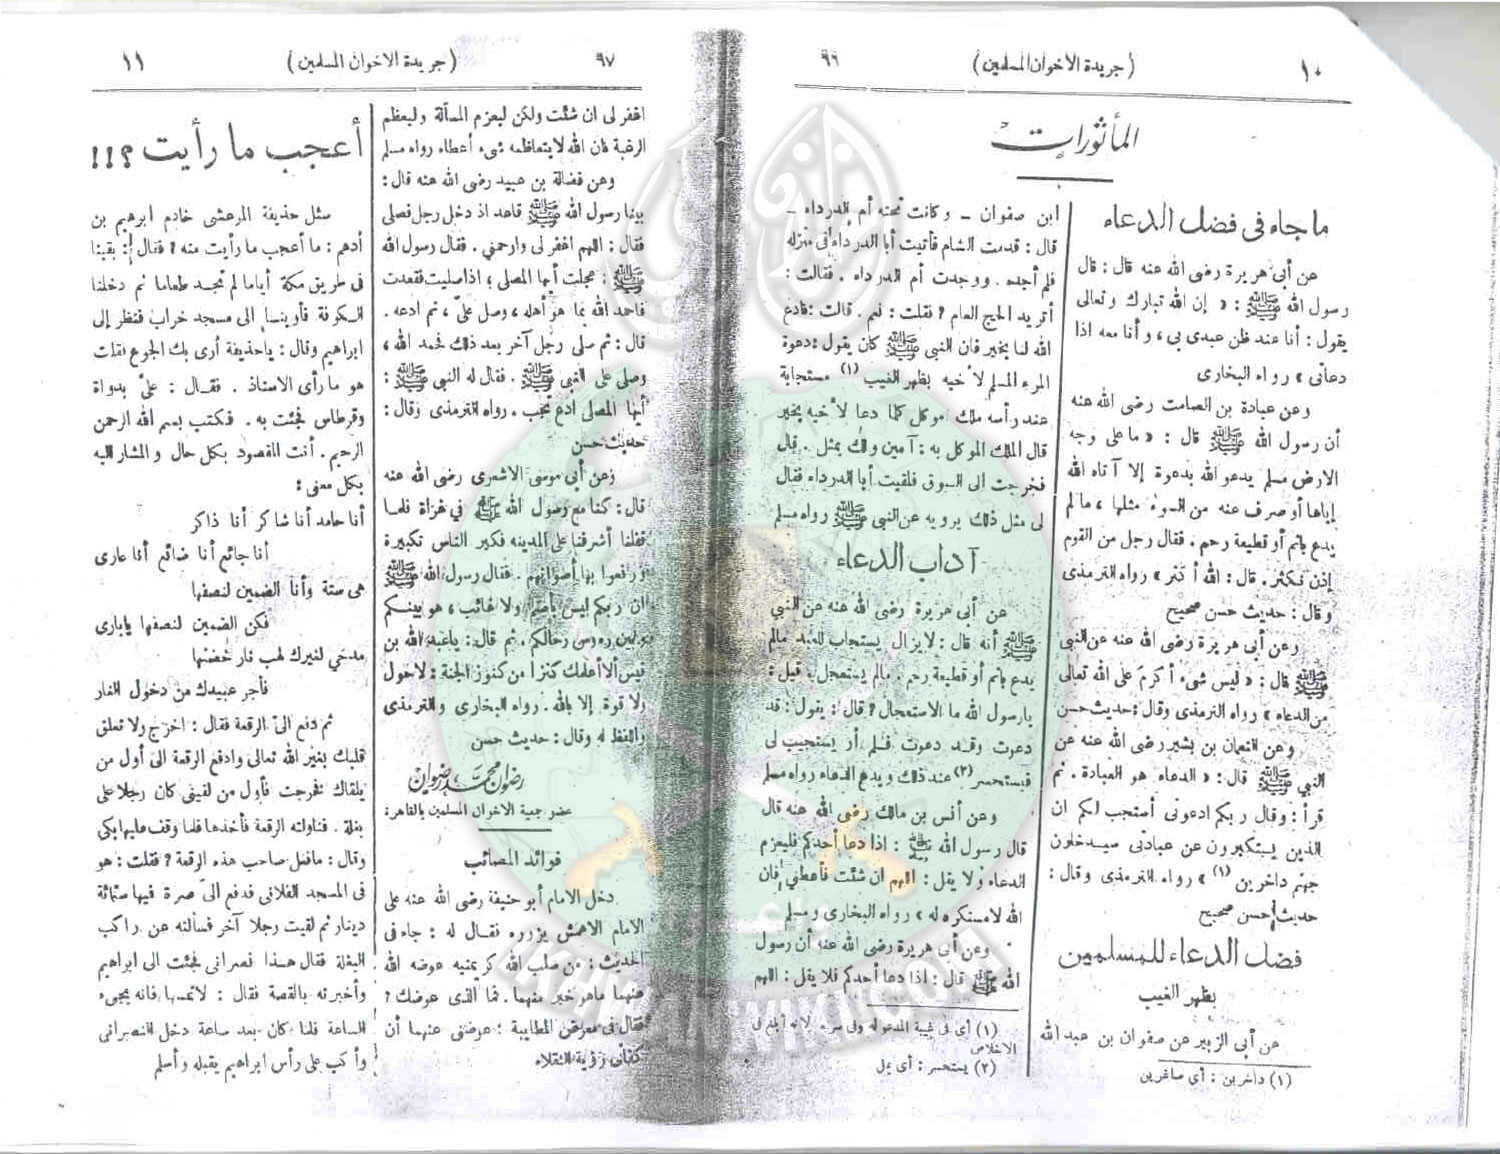 ١٠
(جريدة الاخوان المسلمين)
٩٦
المأثورات
ما جاء في فضل الدعاء
عن أبي هريرة رضى الله عنه قال : قال
رسول الله ﷺ : « إن الله تبارك وتعالى
يقول : أنا عند ظن عبدى بي ، وأنا معه اذا
دعانى » رواه البخارى
وعن عبادة بن الصامت رضى الله عنه
أن رسول الله ﷺ قال : « ما على وجه
الارض مسلم يدعو الله بدعوة إلا آتاه الله
إياها أو صرف عنه من السوء مثلها ، مالم
يدع بإثم أو قطيعة رحم . فقال رجل من القوم
إذن نكثر . قال : الله أكثر » رواه الترمذى
وقال : حديث حسن صحيح
وعن أبى هريرة رضى الله عنه عن النبي
ﷺ قال : « ليس شىء أكرم على الله تعالى
من الدعاء » رواه الترمذى وقال : حديث حسن
وعن النعمان بن بشير رضى الله عنه عن
النبي ﷺ قال : « الدعاء هو العبادة . ثم
قرأ : وقال ربكم ادعونى أستجب لكم ان
الذين يستكبرون عن عبادتى سيدخلون
جهنم داخرين (١) » رواه الترمذى وقال :
حديث حسن صحيح
فضل الدعاء للمسلمين
بظهر الغيب
عن أبى الزبير عن صفوان بن عبد الله
(١) داخرين : أي صاغرين
ابن صفوان ـ وكانت تحته أم الدرداء ـ
قال : قدمت الشام فأتيت أبا الدرداء فى منزله
فلم أجده . ووجدت أم الدرداء . فقالت :
أتريد الحج العام ؟ فقلت : نعم . قالت : فادع
الله لنا بخير فان النبي ﷺ كان يقول : دعوة
المرء المسلم لأخيه بظهر الغيب (١) مستجابة
عند رأسه ملك موكل كلما دعا لأخيه بخير
قال الملك الموكل به : آمين ولك بمثل . قال
فخرجت الى السوق فلقيت أبا الدرداء فقال
لى مثل ذلك يرويه عن النبي ﷺ رواه مسلم
آداب الدعاء
عن أبى هريرة رضى الله عنه عن النبي
ﷺ أنه قال : لا يزال يستجاب للعبد مالم
يدع بإثم أو قطيعة رحم . مالم يستعجل . قيل :
يارسول الله ما الاستعجال ؟ قال : يقول : قد
دعوت وقد دعوت فلم أر يستجيب لى
فيستحسر (٢) عند ذلك ويدع الدعاء رواه مسلم
وعن أنس بن مالك رضى الله عنه قال
قال رسول الله ﷺ : اذا دعا أحدكم فليعزم
الدعاء ولا يقل : اللهم ان شئت فأعطني فان
الله لا مستكره له » رواه البخارى ومسلم
وعن أبى هريرة رضى الله عنه أن رسول
الله ﷺ قال : اذا دعا أحدكم فلا يقل : اللهم
(١) أي فى غيبة المدعو له وفى سره لانه أبلغ فى
الاخلاص
(٢) يستحسر : أى يمل
٩٧
(جريدة الاخوان المسلمين)
١١
اغفر لى ان شئت ولكن ليعزم المسألة وليعظم
الرغبة فان الله لا يتعاظمه شىء أعطاه رواه مسلم
وعن فضالة بن عبيد رضى الله عنه قال :
بينا رسول الله ﷺ قاعد اذ دخل رجل فصلى
فقال : اللهم اغفر لى وارحمني . فقال رسول الله
ﷺ : عجلت أيها المصلى ؛ اذا صليت فقعدت
فاحمد الله بما هو أهله ، وصل علىّ ، ثم ادعه .
قال : ثم صلى رجل آخر بعد ذلك فحمد الله ،
وصلى على النبي ﷺ . فقال له النبي ﷺ :
أيها المصلى ادع تجب . رواه الترمذى وقال :
حديث حسن
وعن أبى موسى الاشعرى رضى الله عنه
قال : كنا مع رسول الله ﷺ فى غزاة فلما
قفلنا أشرفنا على المدينه فكبر الناس تكبيرة
ورفعوا بها أصواتهم . فقال رسول الله ﷺ
ان ربكم ليس بأصم ولا غائب ، هو بينكم
وبين رءوس رحالكم . ثم قال : ياعبد الله بن
قيس ألا أعلمك كنزا من كنوز الجنة : لا حول
ولا قوة إلا بالله . رواه البخارى والترمذى
واللفظ له وقال : حديث حسن
رضوان محمد رضوان
عضو جمعية الاخوان المسلمين بالقاهرة
فوائد المصائب
دخل الامام أبو حنيفة رضى الله عنه على
الامام الاعمش يزوره فقال له : جاء فى
الحديث : من صلب الله كريمتيه عوضه الله
عنهما ماهو خير منهما . فما الذى عوضك ؟
فقال فى معرض المطايبة : عوضنى عنهما أن
كفانى رؤية الثقلاء
أعجب ما رأيت ؟!!
سئل حذيفة المرعشى خادم ابرهيم بن
أدهم : ما أعجب ما رأيت منه ؟ فقال : بقينا
فى طريق مكة أياما لم نجد طعاما ثم دخلنا
الكوفة فأوينا الى مسجد خراب فنظر إلى
ابراهيم وقال : ياحذيفة أرى بك الجوع فقلت
هو ما رأى الاستاذ . فقال : علىّ بدواة
وقرطاس فجئت به . فكتب بسم الله الرحمن
الرحيم . أنت المقصود بكل حال والمشار اليه
بكل معنى :
أنا حامد أنا شاكر أنا ذاكر
أنا جائع أنا ضائع أنا عارى
هى ستة وأنا الضمين لنصفها
فكن الضمين لنصفها يابارى
مدحى لغيرك لهب نار خضتها
فأجر عبيدك من دخول النار
ثم دفع الىّ الرقعة فقال : اخرج ولا تعلق
قلبك بغير الله تعالى وادفع الرقعة الى أول من
يلقاك فخرجت فأول من لقينى كان رجلا على
بغلة . فناولته الرقعة فأخذها فلما وقف عليها بكى
وقال : مافعل صاحب هذه الرقعة ؟ فقلت : هو
فى المسجد الفلانى فدفع الىّ صرة فيها ستمائة
دينار ثم لقيت رجلا آخر فسألته عن راكب
البغلة فقال هذا نصرانى فجئت الى ابراهيم
وأخبرته بالقصة فقال : لا تمسها فانه يجىء
الساعة فلما كان بعد ساعة دخل النصرانى
وأكب على رأس ابراهيم يقبله وأسلم
IKHWANWIKI.COM